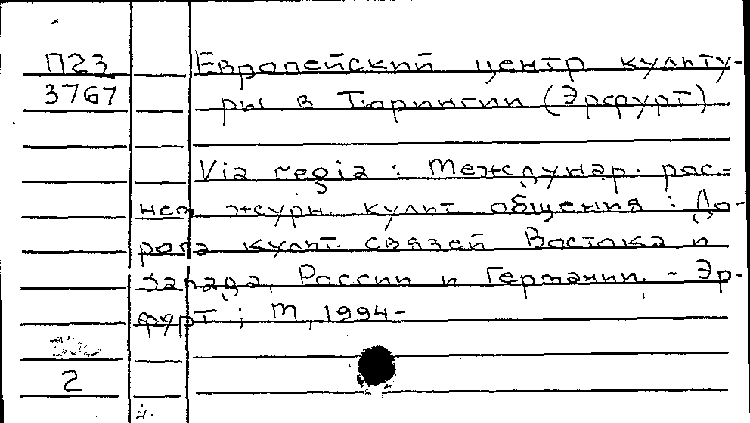 П23
3767
Европейский центр культу-
ры в Тюрингии (Эрфурт)
Via regia : Междунар. рос.-
нем. журн. культ. общения : До-
рога культ. связей Востока и
Запада, России и Германии. - Эр-
фурт ; М, 1994-
2